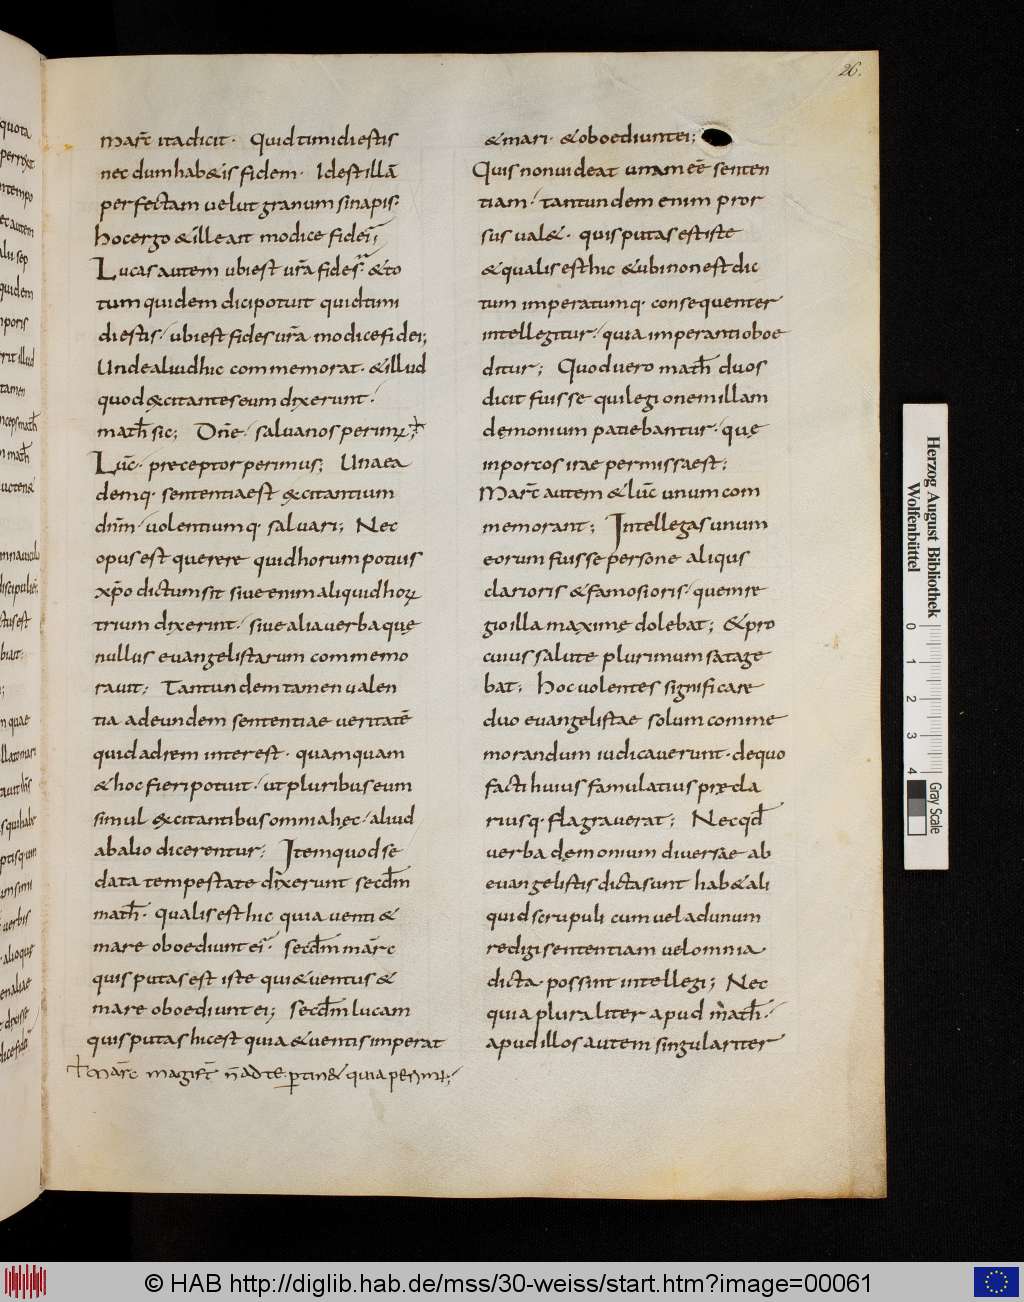 26.
marc̄ ita dicit· Quid timidi estis
nec dum hab&is fidem· Id est illā
perfectam uelut granum sinapis·
hoc ergo & ille ait modice fidei;
Lucas autem ubi est ur̄a fides· & to
tum quidem dici potuit quid timi
di estis/ ubi est fides ur̄a modice fidei;
Unde aliud hic commemorat· & illud
quod excitantes eum dixerunt·
math̄ sic; Dn̄e/ salua nos perimꝰ;
Luc̄· preceptor perimus; Una ea
demq· sententia est excitantium
dn̄m/ uolentiumq· saluari; Nec
opus est querere quid horum potius
xp̄o dictum sit siue enim aliquid hoꝝ
trium dixerint/ siue alia uerba quę
nullus euangelistarum commemo
rauit; Tantundem tamen ualen
tia ad eundem sententiae ueritatē
quid ad rem interest· quamquam
& hoc fieri potuit/ ut pluribus eum
simul excitantibus omnia hęc/ aliud
ab alio dicerentur; Item quod se
data tempestate dixerunt secdm̄
math̄· qualis est hic quia uenti &
mare oboediunt ei· secdm̄ marc
quis putas est iste qui & uentus &
mare oboediunt ei; secdm̄ lucam
quis putas hic est quia & uentis imperat
marc̄ magist̄ n̄ ad te ꝑtin& quia perimꝰ;
& mari· & oboediunt ei;
Quis non uideat unam eē senten
tiam/ tantundem enim pror
sus ual&· quis putas est iste
& qualis est hic & ubi non est dic
tum imperatumq· consequenter
intellegitur/ quia imperanti oboe
ditur; Quod uero math̄ duos
dicit fuisse qui legionem illam
demonium patiebantur/ quę
in porcos irae permissa est;
Marc̄ autem & luc̄ unum com
memorant; Intellegas unum
eorum fuisse persone aliquis
clarioris & famosioris/ quem re
gio illa maxime dolebat; & pro
cuius salute plurimum satage
bat; hoc uolentes significare
duo euangelistae solum comme
morandum iudicauerunt· de quo
facti huius fama latius precla
riusq· flagrauerat; Nec qd̄
uerba demonium diuersae ab
euangelistis dicta sunt hab& ali
quid scrupuli cum uel ad unum
redigi sententiam uel omnia
dicta possint intellegi; Nec
quia pluraliter apud math̄·
apud illos autem singulariter
Herzog August Bibliothek
Wolfenbüttel
0 1 2 3 4
Gray Scale
© HAB http://diglib.hab.de/mss/30-weiss/start.htm?image=00061